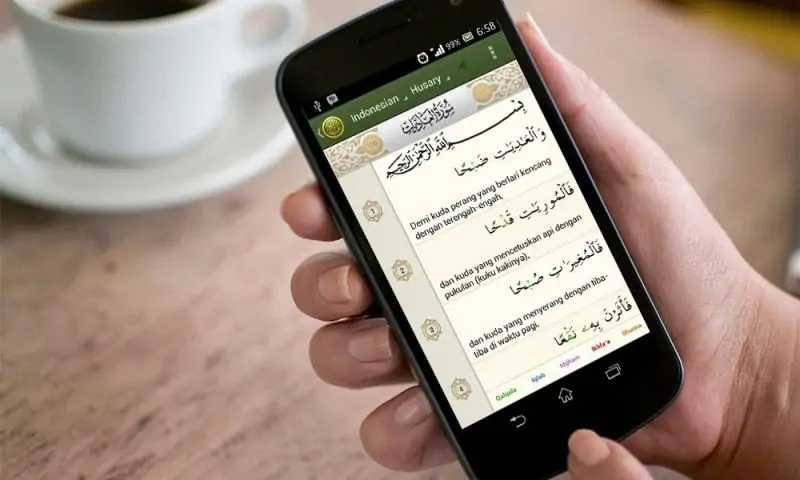 99% 6:58
Indonesian Husary
سُورَةُ العَادِيَات
100
بِسْمِ اللَّهِ الرَّحْمَٰنِ الرَّحِيمِ
وَٱلْعَٰدِيَٰتِ ضَبْحًا
1
Demi kuda perang yang berlari kencang
dengan terengah-engah.
فَٱلْمُورِيَٰتِ قَدْحًا
2
dan kuda yang mencetuskan api dengan
pukulan (kuku kakinya),
فَٱلْمُغِيرَٰتِ صُبْحًا
3
dan kuda yang menyerang dengan tiba-
tiba di waktu pagi,
فَأَثَرْنَ بِهِۦ نَقْعًا
4
Qalqala Iqlab Idgham Ikhfa'a Ghunna